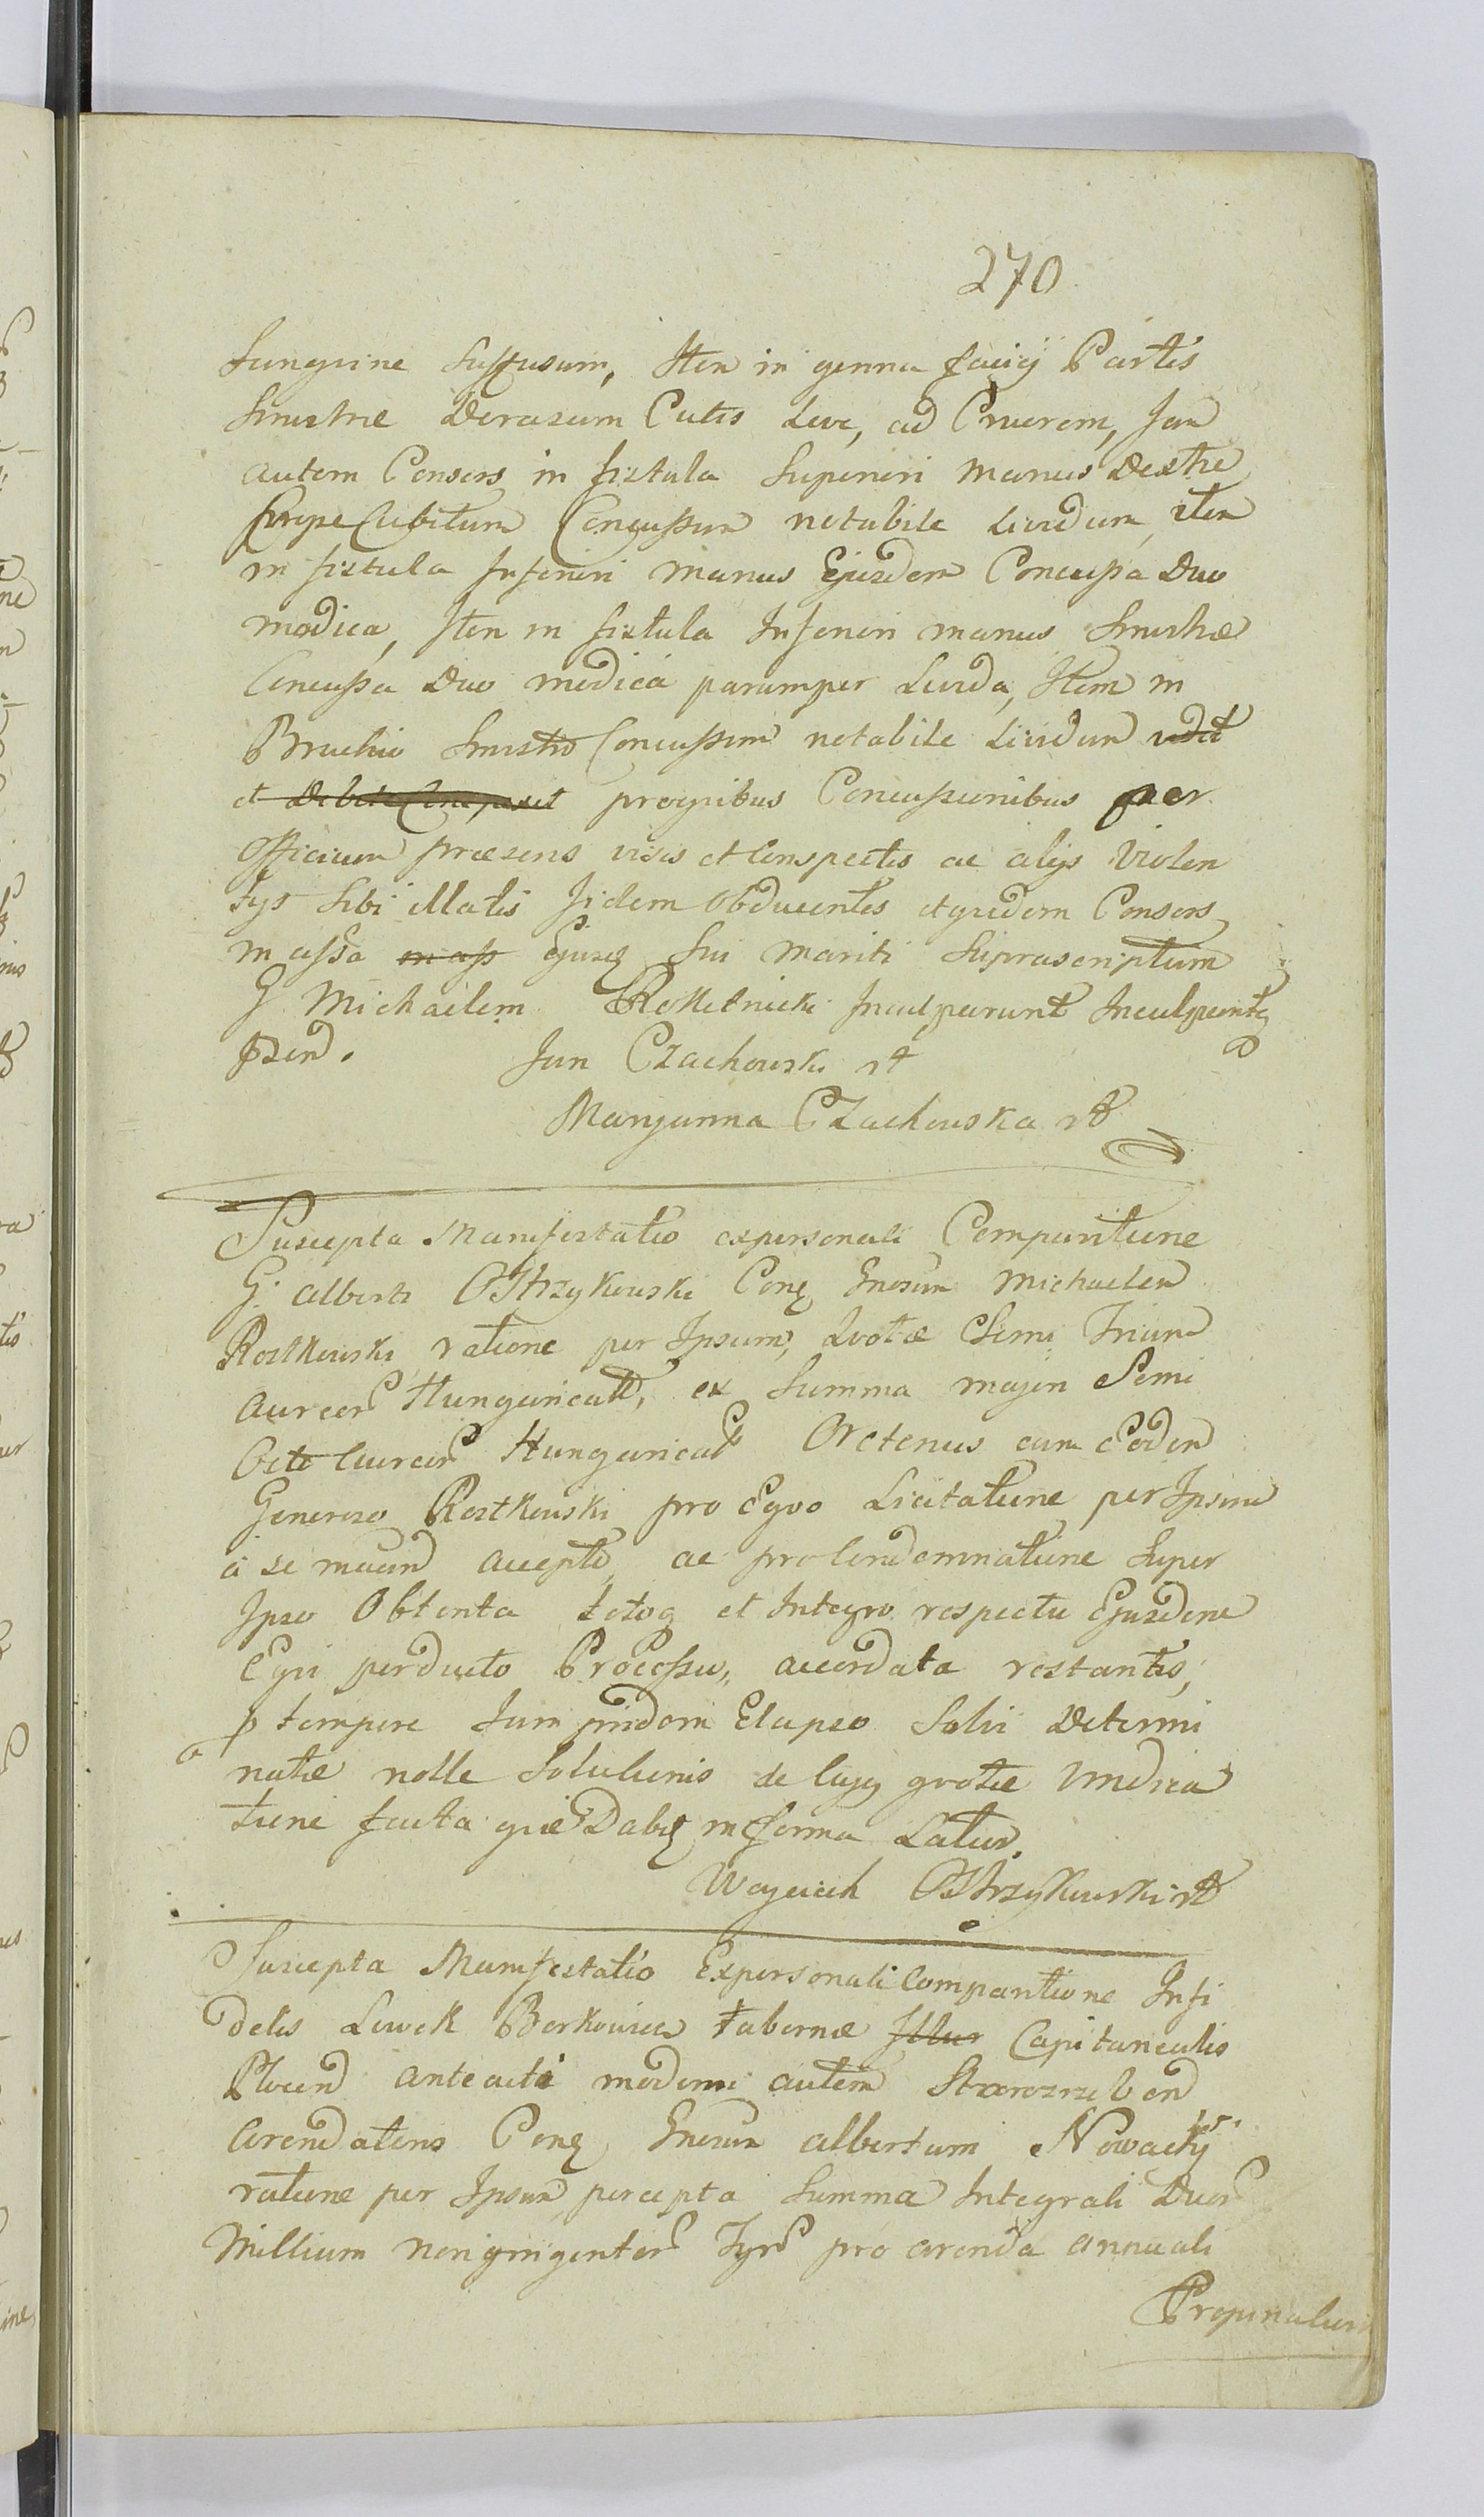 270
Sanguine suffusum, Item in genna faciej Partis
Sinistrae Derasum Cutis Leve, ad Cruorem, Jam
autem Consors in fistula Superiori manus Dextrae
prope Cubitum Concussum notabile Lividum, item
in fistula Inferiori manus Ejusdem Concussa Duo
modica, Item in fistula Inferiori manus Sinistrae
Concussa Duo modica parumper Livida, Item in
Brachio Sinistro Concussum notabile Lividum
et proquibus Concussionibus per
Officium praesens visis et Conspectis ac alijs Violen
tijs Sibi illatis Iidem Obducentes etquidem Consors
in assa Ejusq Sui mariti Suprascriptum
G Michaelem Inculparunt Inculpantq
Pszend.
Jan Czachowski
Maryanna Czachowska
Suscepta Manifestatio expersonali Comparitione
G. Alberti OStrzykowski Conq Gnosum Michaelem
Rostkowski ratione per Ipsum, Quotae Semi Trium
Aureor Hungaricall, ex Summa majori Semi
Octo Aureor Hungarical Oretenus cum Eodem
Generoso Rostkowski pro Equo Licitatione per Ipsum
a se accepto, ac pro Condemnatione Super
Ipso Obtenta totoq et Integro respectu Ejusdem
Equi perducto Processu, accordata restantis,
p tempore Jam pridem Elapso Solvi Determi
natae nolle Solutionis de Cujq quotae Vindica
tione facta quae Dabit in forma Latior.
Woyciech OStrzykowski
Suscepta Manifestatio Expersonali Comparitione Infi
delis Lewek Berkowicz tabernae Capitanealis
Plocen anteacti moderni autem
Arendatoris Conq Gnosum Albertum Nowacky
ratione per Ipsum percepta Summa Integrali Duor
Millium nongingentor Tyn pro arenda annuali
Propinationis